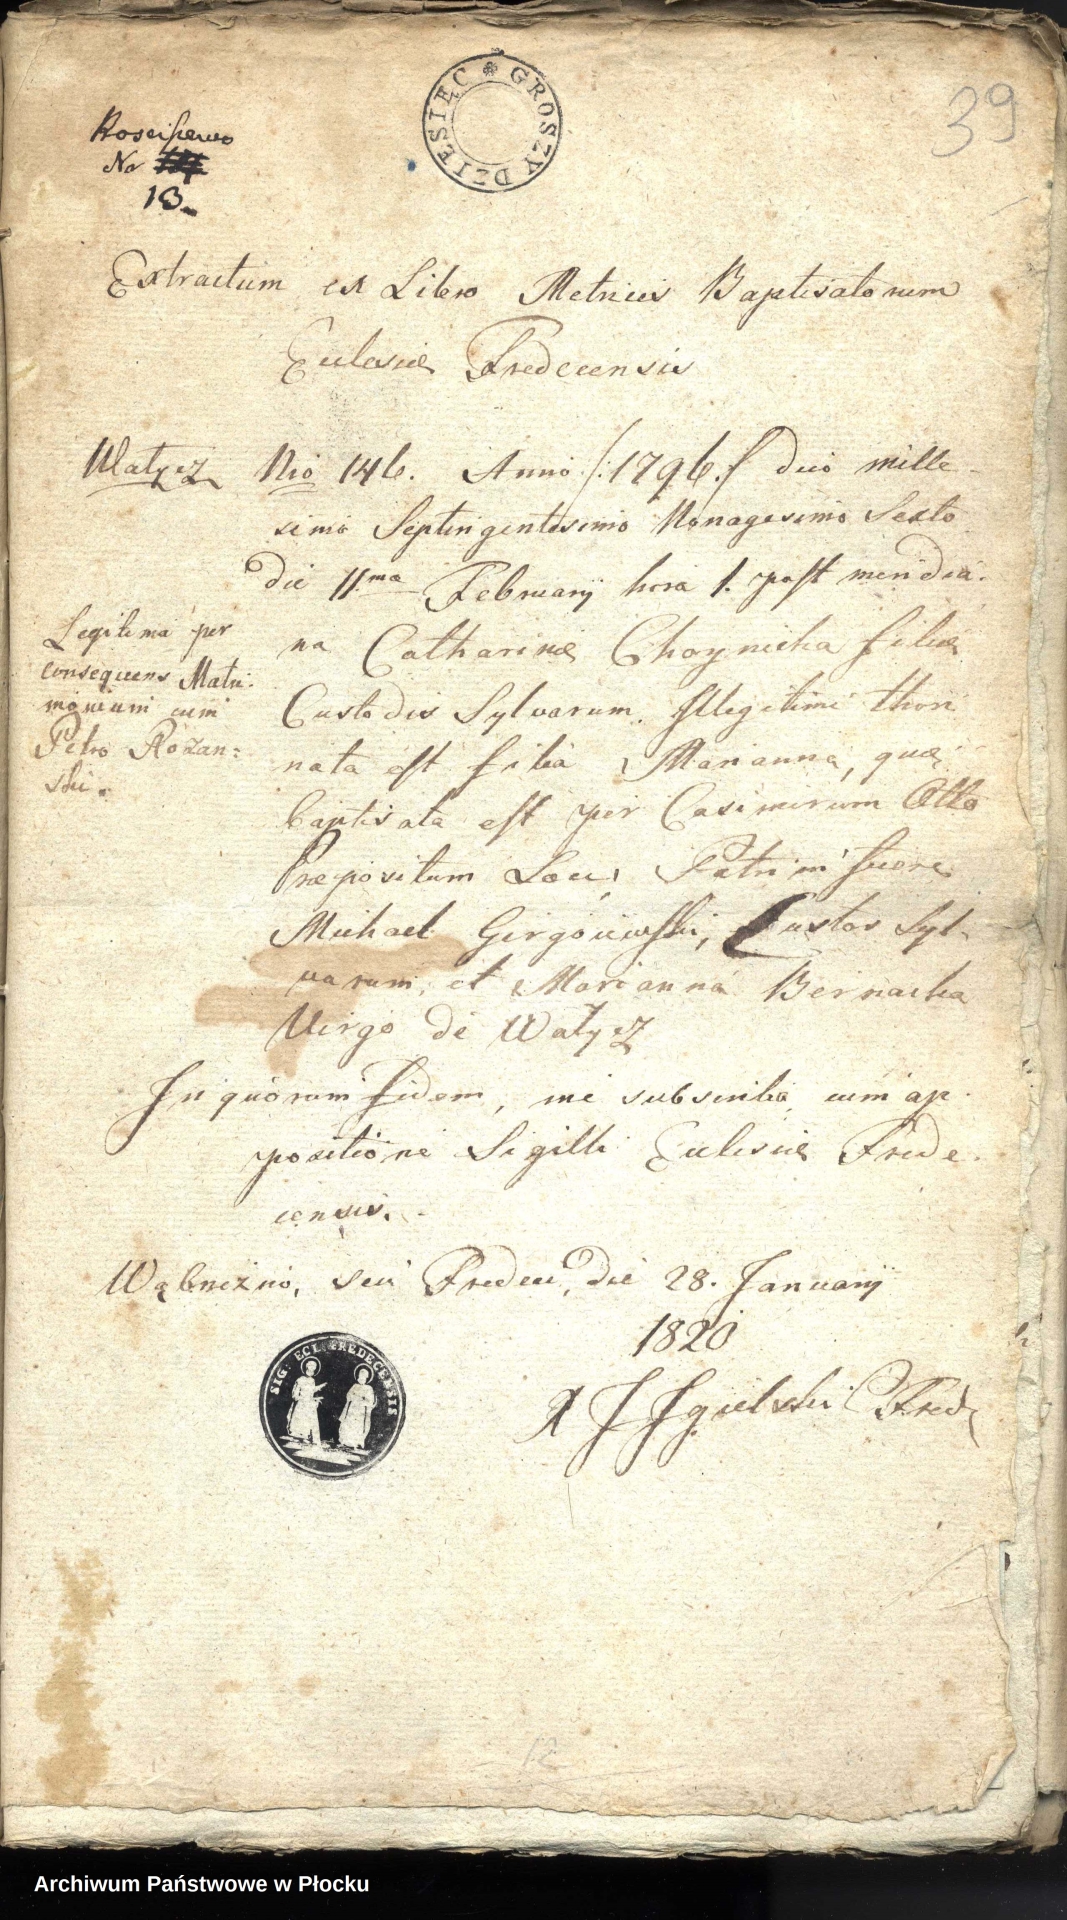 DZIESIĘC GROSZY
39
Rosciszewo
No
13.
Extractum ex Libro Metrices Baptisatorum
Ecclesiæ Fredecensis
Wałycz Nro 146. Anno /:1796./ duo mille-
simo Septingentesimo Nonagesimo Sexto
die 11.ma Februarij hora 1. post meridia-
na Catharinæ Choynicka filiæ
Custodis Sylvarum. Illegitimi thori
nata est filia Marianna, quæ
baptisata est per Casimirum Otto
Præpositum Loci, Patrini fuere
Michael Girgo, Custos Syl-
varum, et Marianna Bernacka
Virgo de Wałycz
Legitima per
consequens Matri-
monium cum
Petro Rożan=
ski.
In quorum fidem, me subscribo cum ap-
positione Sigilli Ecclesiæ Frede-
censis.
Wąbrzeźno, seu Fredecii, die 28. Januarij
1820
SIG: ECL. FREDECENSIS
X J Jgielski C. Fred
12
Archiwum Państwowe w Płocku